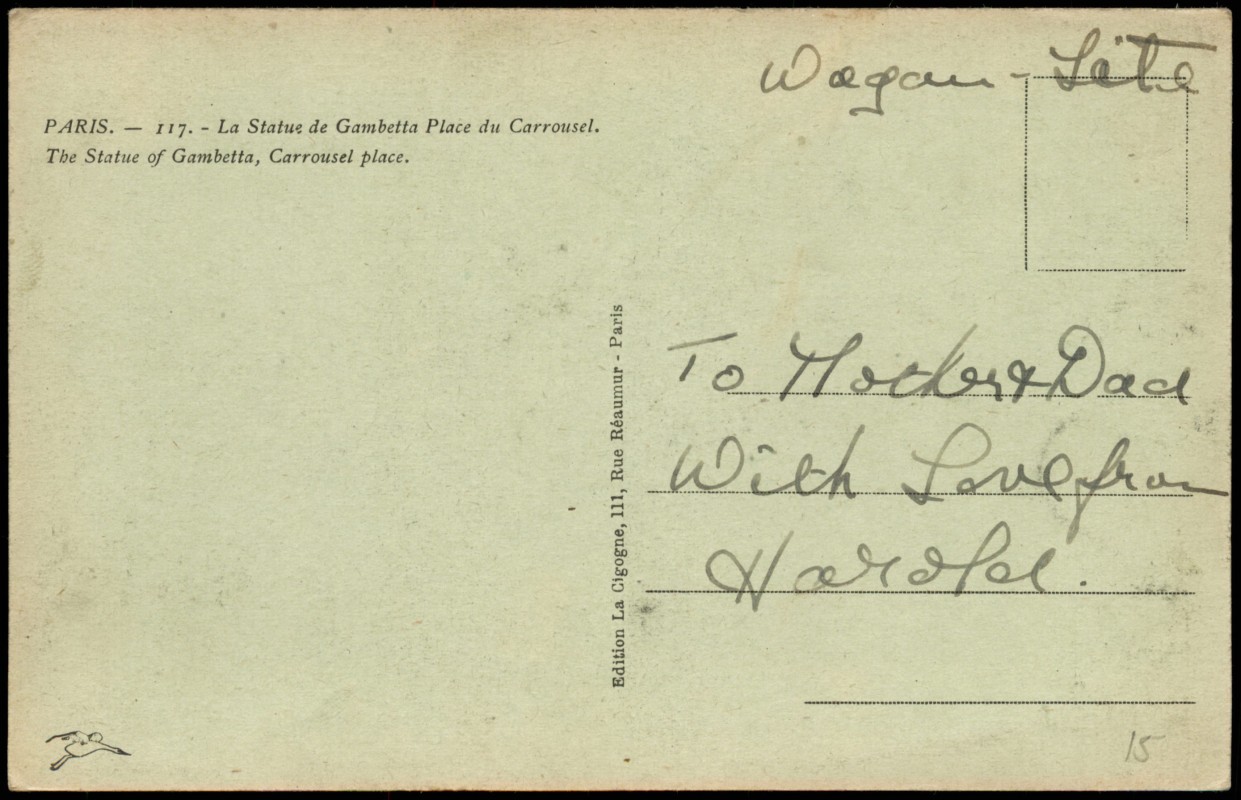 Wagon-Lits
PARIS. — 117. - La Statue de Gambetta Place du Carrousel.
The Statue of Gambetta, Carrousel place.
Edition La Cigogne, 111, Rue Réaumur - Paris
To Mother & Dad
With Love from
Harold.
15